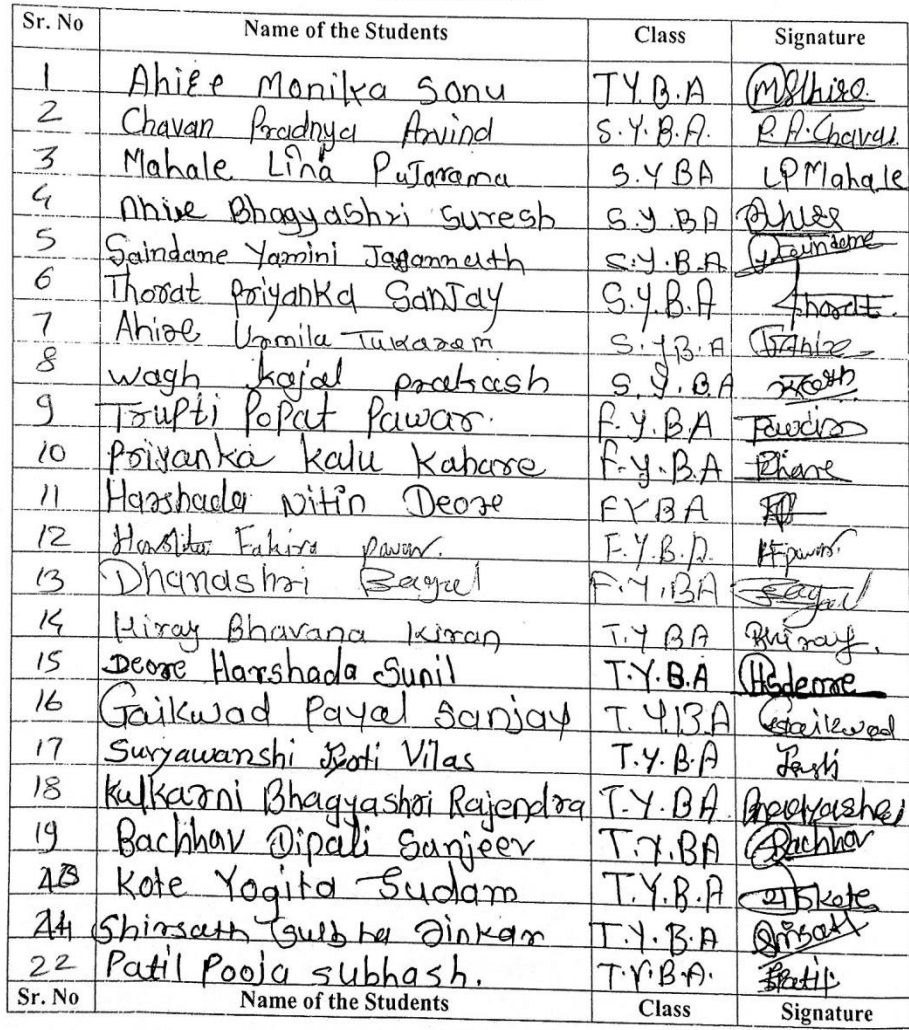 Sr. No Name of the Students Class Signature
1 Ahire Monika Sonu T.Y.B.A MSAhire
2 Chavan Pradnya Arvind S.Y.B.A. P.A.Chavan
3 Mahale Lina Pujarama S.Y BA LPMahale
4 Ahire Bhagyashri Suresh S.Y.BA Ahire
5 Saindane Yamini Jagannath S.Y.B.A Ysaindane
6 Thorat Priyanka Sanjay S.Y.B.A Thorat.
7 Ahire Urmila Tukaram S.Y.B.A
8 wagh kajal prakash S.Y.BA
9 Trupti Popat Pawar. F.Y.B.A Pawar
10 Priyanka Kalu Kahare F.Y.B.A
11 Harshada Nitin Deore FYBA
12 Fakira Pawar. F.Y.B.A. HFpawar.
13 Dhanashri Bagul F.Y.BA Bagul
14 Hiray Bhavana Kiran T.Y BA Bhiray.
15 Deore Harshada Sunil T.Y.B.A HSdeore
16 Gaikwad Payal Sanjay T.Y.B.A Gaikwad
17 Suryawanshi Jyoti Vilas T.Y.B.A
18 Kulkarni Bhagyashri Rajendra T.Y.BA Bhagyashri
19 Bachhav Dipali Sanjeev T.Y.BA Bachhav
Kote Yogita Sudam T.Y.B.A
Shirsath Dinkar T.Y.B.A
22 Patil Pooja subhash. T.Y.B.A. Patil
Sr. No Name of the Students Class Signature